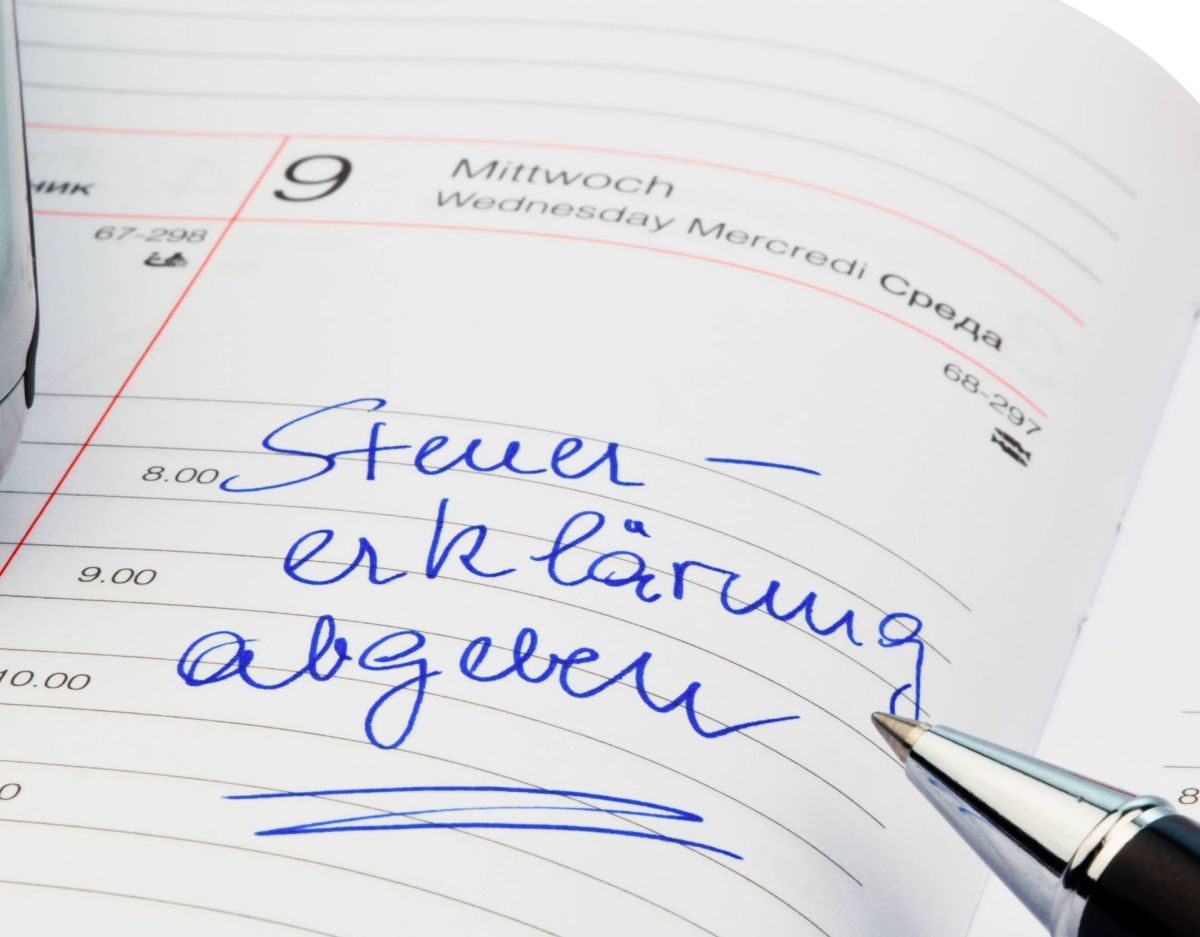 9 Mittwoch
Wednesday Mercredi Среда
67-298
68-297
Steuer –
8.00
erklärung
9.00
abgeben
10.00
0
8